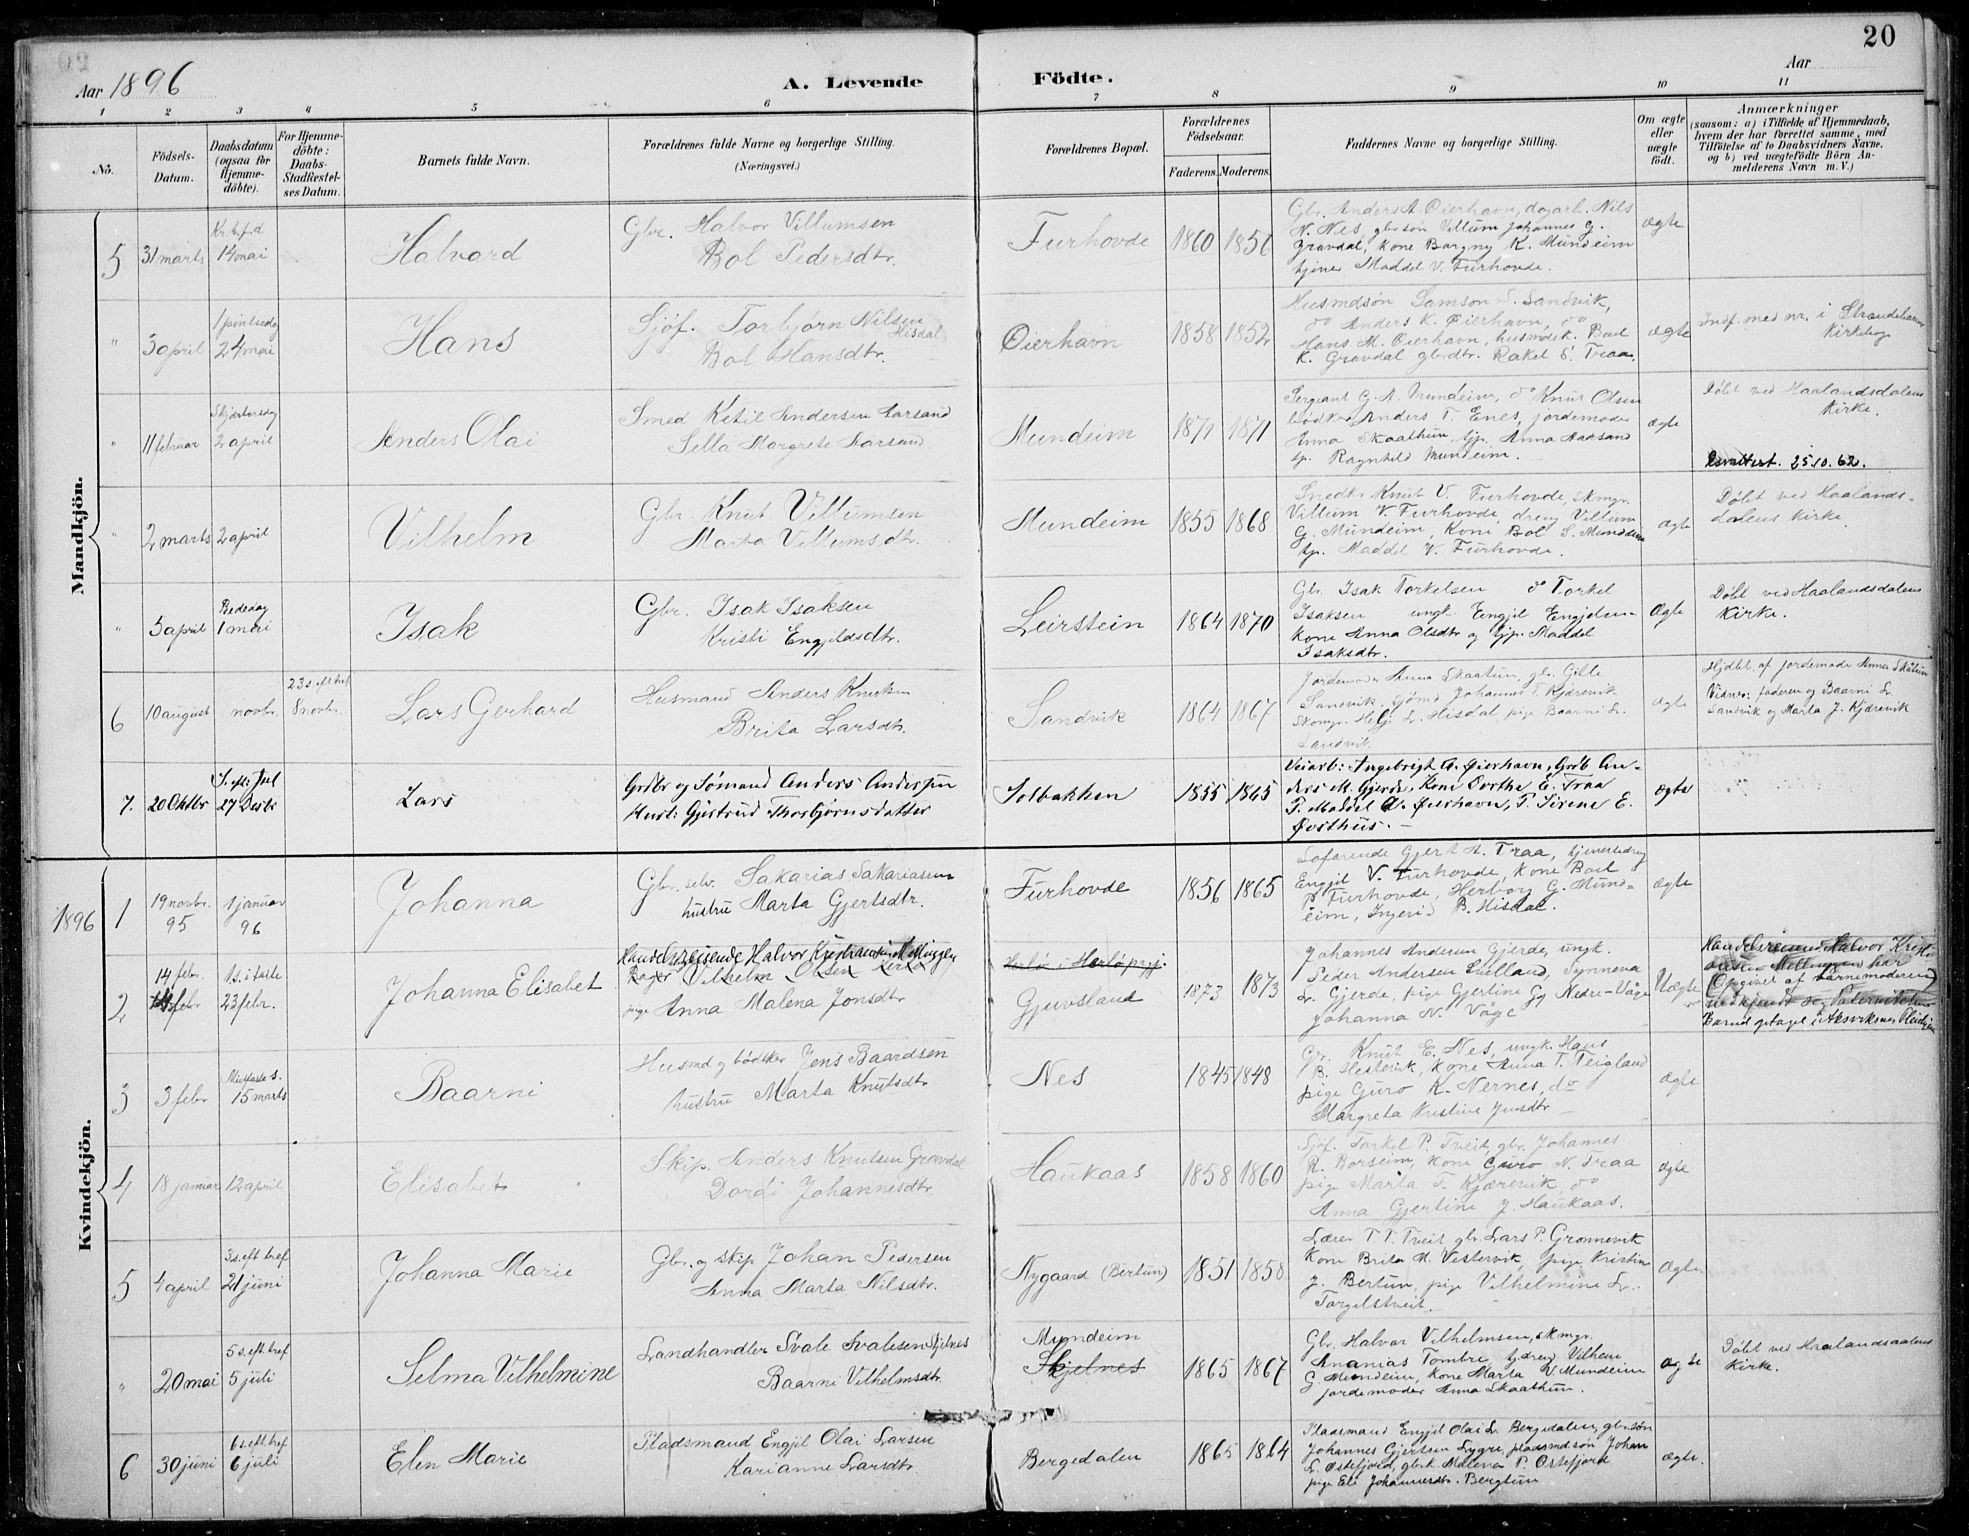 20
Aar 1896
A. Levende
Födte.
Aar
1 2 3 4 5 6 7 8 9 10 11
No.
Födsels-
Datum.
Daabsdatum
(ogsaa for
Hjemme-
döbte).
For Hjemme-
döbte:
Daabs-
Stadfæstel-
ses Datum.
Barnets fulde Navn.
Forældrenes fulde Navne og borgerlige Stilling.
(Næringsvei.)
Forældrenes Bopæl.
Forældrenes
Födselsaar.
Faderens. Moderens.
Faddernes Navne og borgerlige Stilling.
Om ægte
eller
uægte
födt.
Anmærkninger
(saasom: a) i Tilfælde af Hjemmedaab,
hvem der har forrettet samme, med
Tilföielse af to Daabsvidners Navne.
og b) ved uægtefödte Börn An-
melderens Navn m. V.)
Mandkjön.
5
31 marts
Kr. h. f. d
14 mai
Halvard
Gbr. Halvor Villumsen
Bol Pedersdtr.
Furhovde
1860
Gbr. Anders A. Øierhavn, dagarb. Nils
N. Nes, gbrsön Villum Johannes G.
Gravdal, kone Bargny K. Mundeim
tjener Maddel V. Furhovde.
ægte
"
3 april
1 pintsedag
24 mai
Hans
Sjöf. Torbjørn Nilsen
Hisdal
Bol Hansdtr.
Øierhavn
1858 1852
Husmdsön Samson S. Sandvik,
do Anders K. Øierhavn, do
Hans M. Øierhavn, husmdsk. Boel
K. Gravdal gbrdtr. Rakel S. Traa.
ægte
Indf. med nr. i Strandebarms
Kirkebog
"
11 februar
Skjærtorsdag
2 april
Anders Olai
Smed Ketil Andersen Aarsand
Sella Margrete Aarsand
Mundeim
1871 1871
Sergeant G. A. Mundeim, do Knut Olsen
bødker Anders T. Enes, jordemoder
Anna Skaathun, tjp. Anna Aarsand
tp. Ragnhild Mundeim.
ægte
Døbt ved Haalandsdalens
Kirke.
25.10.62.
"
2 marts
2 april
Vilhelm
Gbr. Knut Villumsen
Marta Villumsdtr.
Mundeim
1855 1868
Snedkr Knut V. Furhovde, skmgr.
Villum V. Furhovde, dreng Villum
G. Mundeim, Kone Bol S. Mundeim
tp. Maddel V. Furhovde.
ægte
Døbt ved Haalands-
dalens Kirke
"
5 april
Bededag
1 mai
Isak
Gbr. Isak Isaksen
Kristi Engjelsdtr.
Leirstein
1864 1870
Gbr Isak Torkelsen do Torkel
Isaksen ungk. Engjel Engjelsen
kone Anna Olsdtr og tjp. Maddel
Isaksdtr.
ægte
Døbt ved Haalandsdalens
Kirke.
6
10 august
novbr.
23 s. eft tref
8 novbr.
Lars Gerhard
Husmand Anders Knutsen
Brita Larsdtr.
Sandvik
1864 1867
Jordemoder Anna Skaatun, gbr Gitle
Sandvik, sjømd Johannes T. Kjærevik
Skomgr. Helje L. Hisdal, pige Baarni L.
Sandvik.
ægte
Hjdbt. af jordemoder Anna Skåtun
Vidner: faderen og Baarni L.
Sandvik og Marta J. Kjærevik
7.
20 Oktbr
S. eft. Jul
27 Decbr
Lars
Grdbr og Sømand Anders Andersen
Hust: Gjertrud Thorbjørnsdatter
Solbakken
1855 1865
Veiarb: Ingebrigt A. Øierhavn, Grdb An-
ders M. Gjerde, Kone Dorthe E. Traa
P. Maddel A. Øierhavn, P. Sirene E.
Østhus.
ægte
Kvindekjön.
1896
1
19 novbr.
95
1 januar
96
Johanna
Gbr. selv. Sakarias Sakariassen
hustru Marta Gjertsdtr.
Furhovde
1856 1865
Søfarende Gjert H. Traa, tjenestedreng
Engjel V. Furhovde, kone Boel
P. Furhovde, Herborg G. Mund-
eim, Ingerid B. Hisdal.
ægte
2
14 febr.
14 febr
1 s. i faste
23 febr.
Johanna Elisabet
Handelsreisende Halvor Kristiansen Mellingen
Bager Vilhelm Olsen Herlø
pige Anna Malena Jonsdtr
Herlø i Herlø prgj.
Gjuvsland
1873 1873
Johannes Andersen Gjerde, ungk.
Peder Andersen Lielland, Synneva
L. Gjerde, pige Gjertine G. Nedre-Våge
Johanna N. Våge
Uægte
Handelsreisende Halvor Kristi-
ansen Mellingen har
(Opgivet af barnemoderen)
vedkjendt sig Paterniteten
3
3 febr
Midfaste s.
15 marts
Baarni
Husmd og bödker Jens Baardsen
hustru Marta Knutsdtr
Nes
1845 1848
Gbr. Knut E. Nes, ungk. Hans
B. Hestevik, kone Anna T. Teigland
pige Guro K. Nernes, do
Margreta Kristine Jensdtr
ægte
4
18 januar
12 april
Elisabet
Skip. Anders Knutsen Gravdal
Dordi Johannesdtr.
Haukaas
1858 1860
Sjöf. Torkel P. Tveit, gbr. Johannes
R. Borseim, kone Guro N. Traa
pige Marta T. Kjærevik, do
Anna Gjertine J. Haukaas.
ægte
5
4 april
3 s. eft tref
21 juni
Johanna Marie
Gbr. og skip Johan Pedersen
Anna Marta Nilsdtr.
Nygaard (Bertun)
1851 1858
Lærer T. T. Tveit gbr. Lars P. Grønnevik
Kone Brita M. Vestervik, pige Kristine
J. Bertun, pige Vilhelmine L.
Torgilstveit.
ægte.
"
20 mai
5 s. eft tref
5 juli
Selma Vilhelmine
Landhandler Svale Svalesen Skjelnes
Baarni Vilhelmsdtr.
Mundeim
Skjelnes
1865 1867
Gbr. Halvar Vilhelmsen, skmgr.
Ananias Tombre, tjdreng Vilhem
G Mundeim, Kone Marta V. Mundeim
jordemoder Anna Skaathun.
ægte
Døbt ved Haalandsdalens
Kirke.
6
30 juni
6 s. eft. tref
6 juli
Elen Marie
Pladsmand Engjel Olai Larsen
Karianne Larsdtr.
Bergedalen
1865 1864
Pladsmand Engjel Olai L. Bergedalen, gbrsön
Johannes Gjertsen Lygre, pladsmdsön Johan
L. Østefjord, gbrk. Malena P. Østefjord
pige Eli Johannesdtr. Bergtun
ægte.